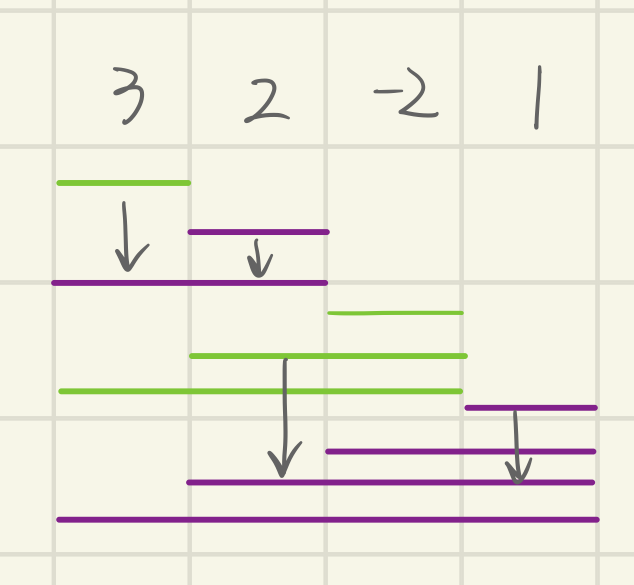 3 2 -2 1